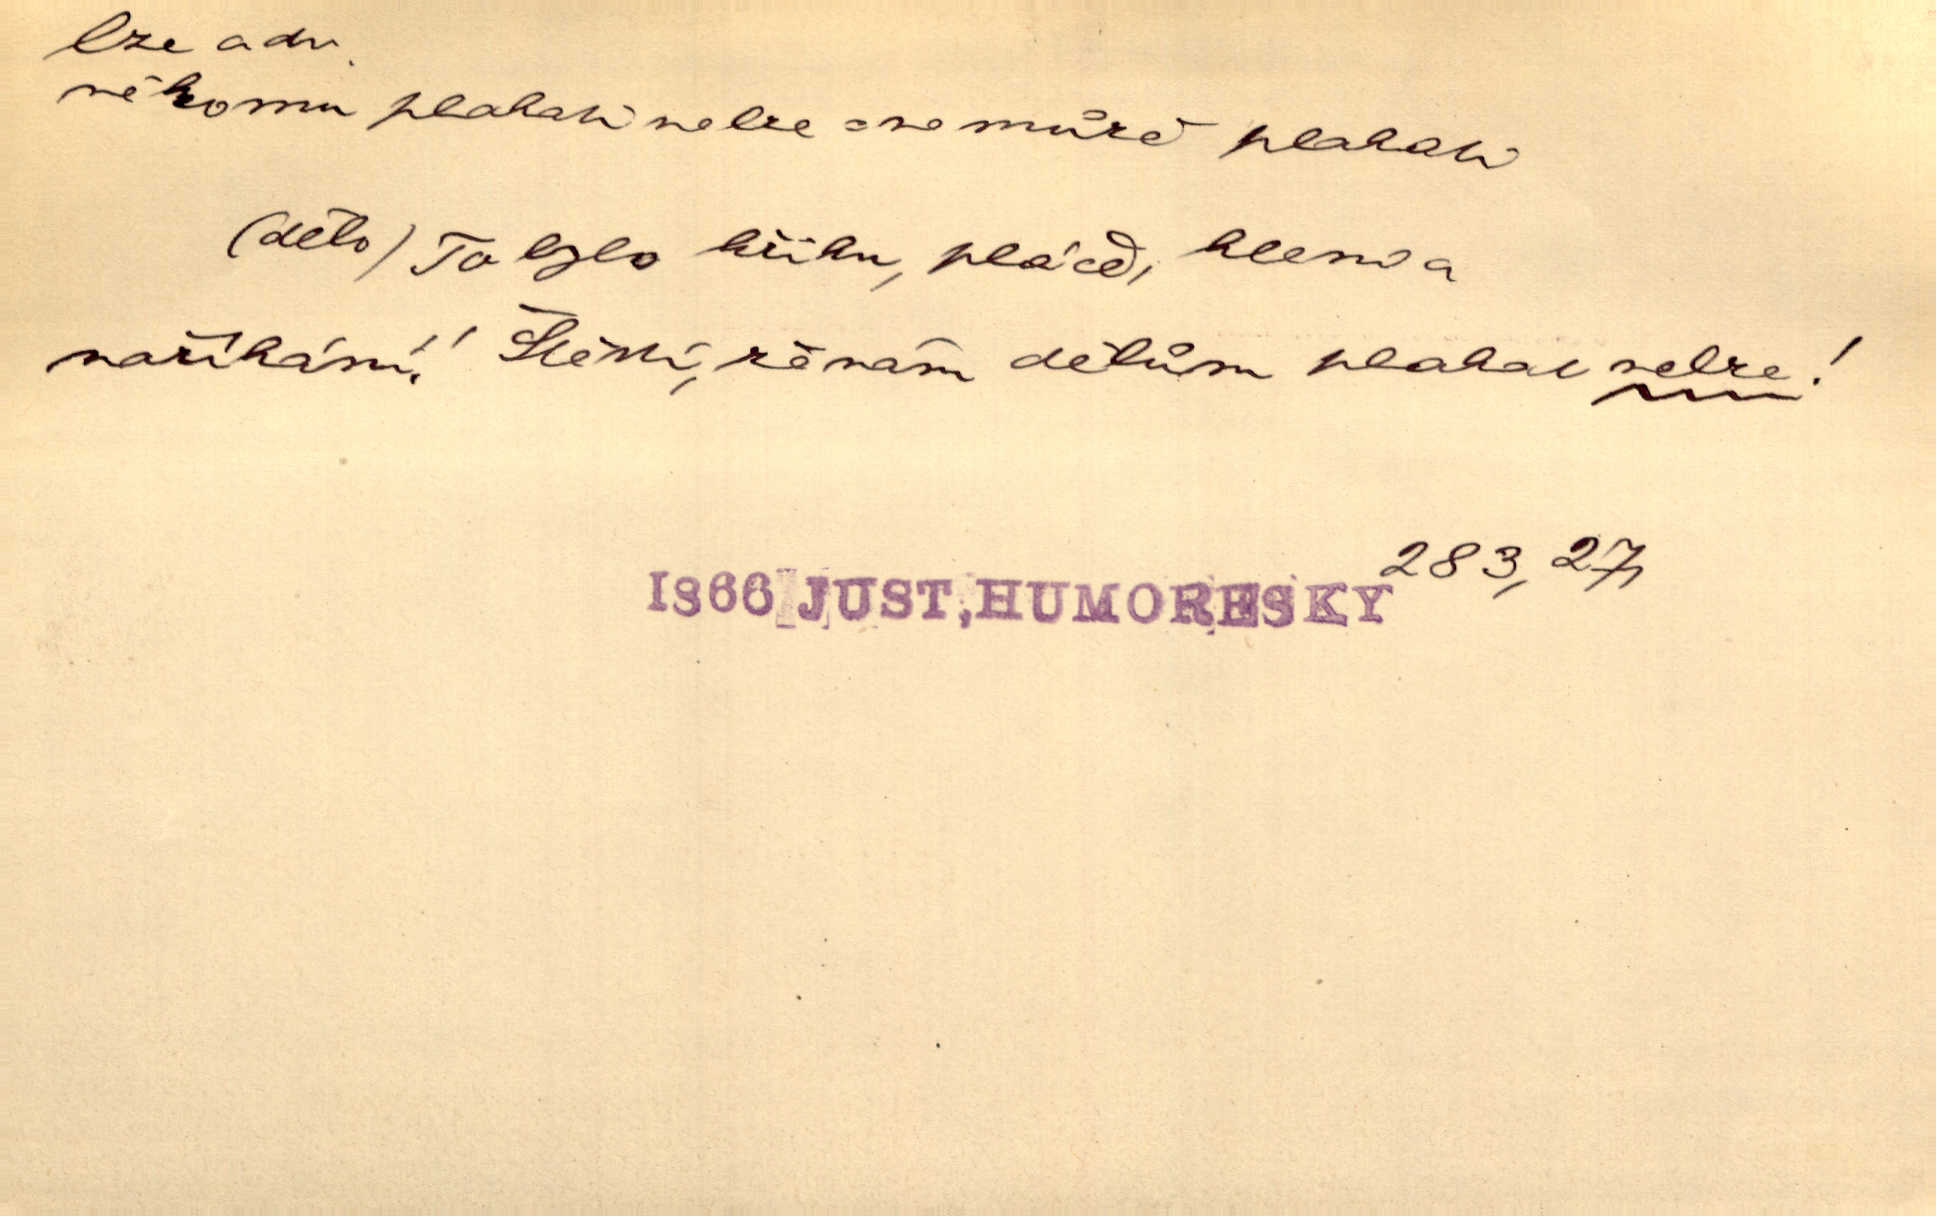 lze adv.
někomu plakati nelze = nemůže plakati
(dětí) To bylo křiku, pláče, klení a
naříkání! Štěstí, že nám dětům plakat nelze!
283, 27
1866 JUST, HUMORESKY